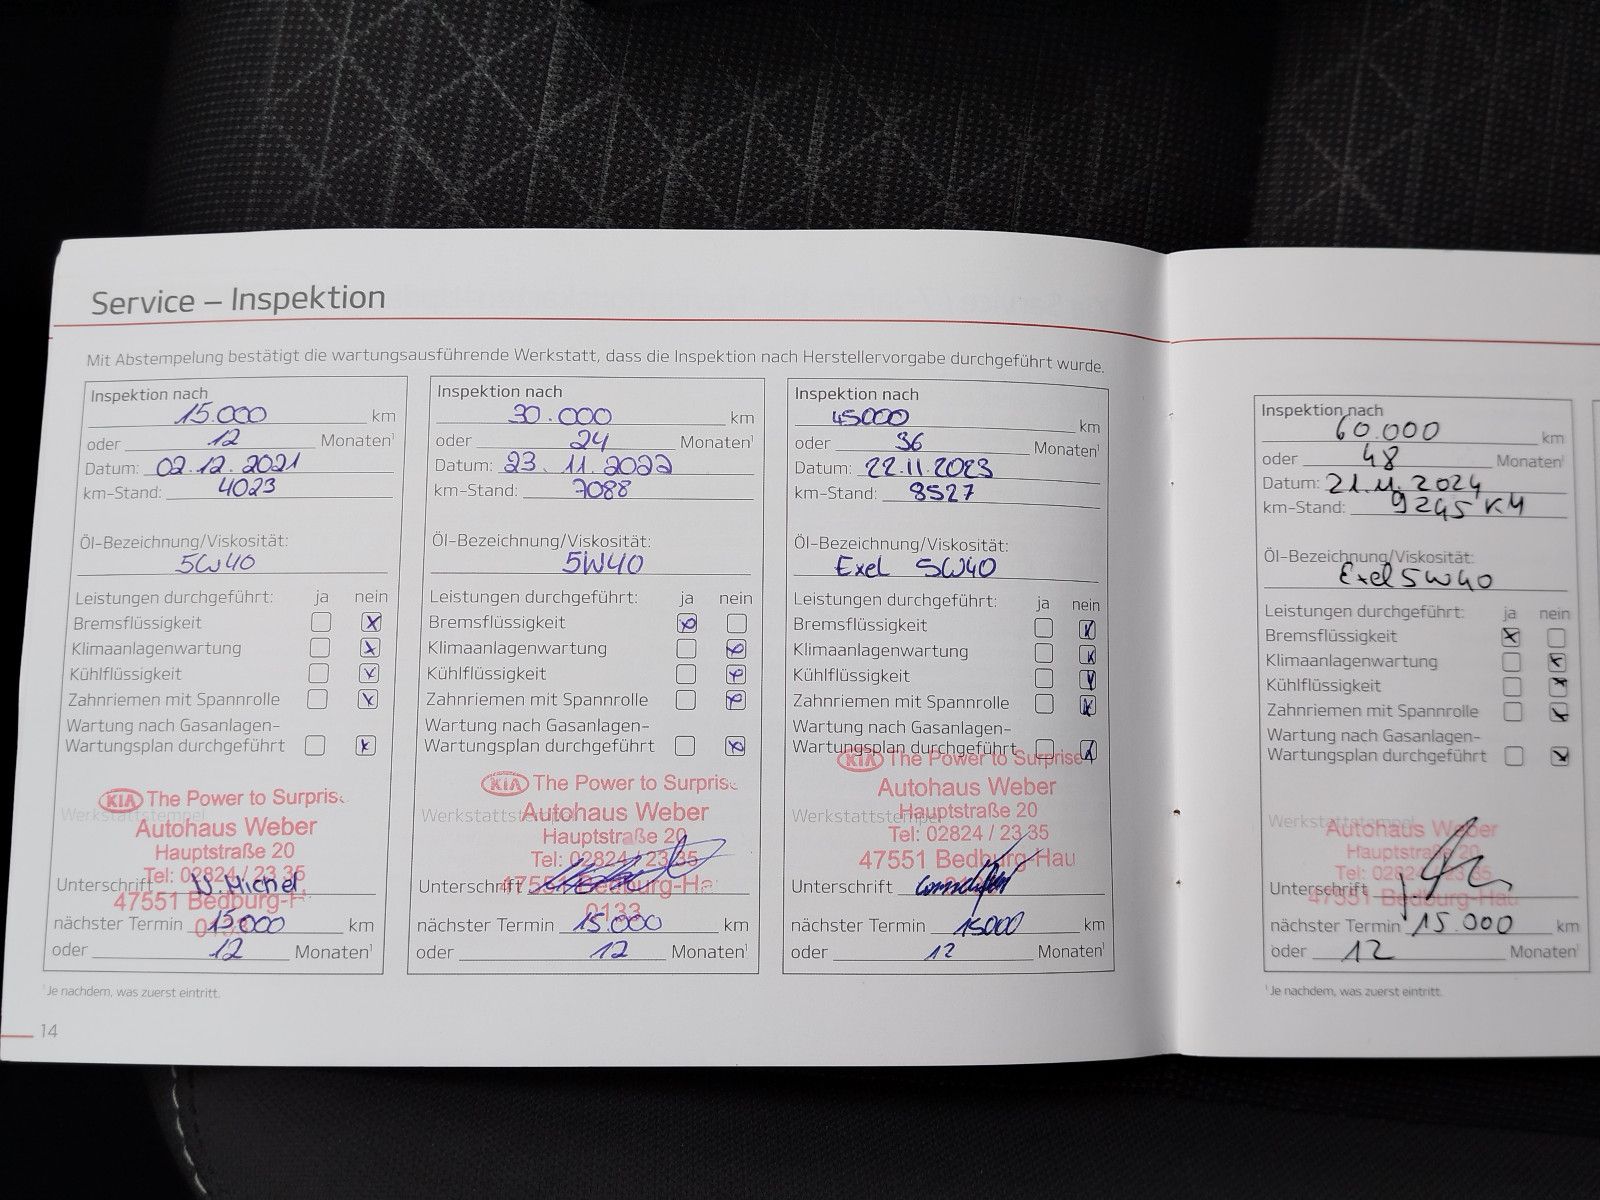 Service – Inspektion
Mit Abstempelung bestätigt die wartungsausführende Werkstatt, dass die Inspektion nach Herstellervorgabe durchgeführt wurde.
Inspektion nach
15.000 km
oder 12 Monaten¹
Datum: 02.12.2021
km-Stand: 4023
Öl-Bezeichnung/Viskosität:
5W40
Leistungen durchgeführt: ja nein
Bremsflüssigkeit x
Klimaanlagenwartung x
Kühlflüssigkeit x
Zahnriemen mit Spannrolle x
Wartung nach Gasanlagen-
Wartungsplan durchgeführt x
KIA The Power to Surprise
Werkstattstempel
Autohaus Weber
Hauptstraße 20
Tel: 02824 / 23 35
47551 Bedburg-H
Unterschrift N. Michel
nächster Termin 15.000 km
oder 12 Monaten¹
¹Je nachdem, was zuerst eintritt.
14
Inspektion nach
30.000 km
oder 24 Monaten¹
Datum: 23.11.2022
km-Stand: 7088
Öl-Bezeichnung/Viskosität:
5W40
Leistungen durchgeführt: ja nein
Bremsflüssigkeit x
Klimaanlagenwartung x
Kühlflüssigkeit x
Zahnriemen mit Spannrolle x
Wartung nach Gasanlagen-
Wartungsplan durchgeführt x
KIA The Power to Surprise
Werkstattstempel
Autohaus Weber
Hauptstraße 20
Tel: 02824 / 23 35
47551 Bedburg-Ha
Unterschrift
0133
nächster Termin 15.000 km
oder 12 Monaten¹
Inspektion nach
45000 km
oder 36 Monaten¹
Datum: 22.11.2023
km-Stand: 8527
Öl-Bezeichnung/Viskosität:
Exel 5W40
Leistungen durchgeführt: ja nein
Bremsflüssigkeit x
Klimaanlagenwartung x
Kühlflüssigkeit x
Zahnriemen mit Spannrolle x
Wartung nach Gasanlagen-
Wartungsplan durchgeführt x
KIA The Power to Surprise
Werkstattstempel
Autohaus Weber
Hauptstraße 20
Tel: 02824 / 23 35
47551 Bedburg-Hau
Unterschrift
nächster Termin 15000 km
oder 12 Monaten¹
Inspektion nach
60.000 km
oder 48 Monaten¹
Datum: 21.11.2024
km-Stand: 9245 KM
Öl-Bezeichnung/Viskosität:
Exel 5W40
Leistungen durchgeführt: ja nein
Bremsflüssigkeit x
Klimaanlagenwartung x
Kühlflüssigkeit x
Zahnriemen mit Spannrolle x
Wartung nach Gasanlagen-
Wartungsplan durchgeführt x
Werkstattstempel
Autohaus Weber
Hauptstraße 20
Tel: 02824 / 23 35
47551 Bedburg-Hau
Unterschrift
nächster Termin 15.000 km
oder 12 Monaten¹
¹Je nachdem, was zuerst eintritt.